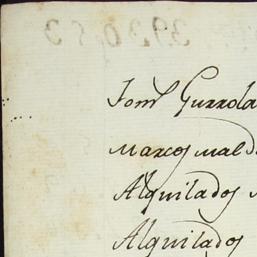 Jom Guzzola
Marcos mald
Alquilados
Alquilados